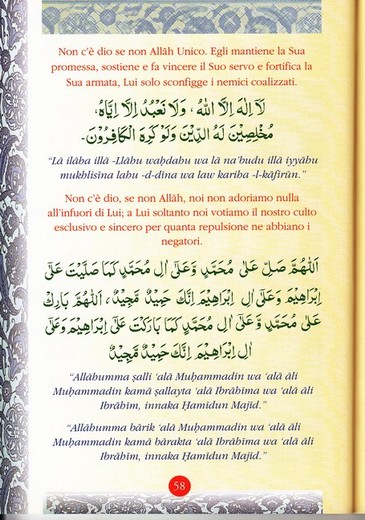 Non c'è dio se non Allâh Unico. Egli mantiene la Sua
promessa, sostiene e fa vincere il Suo servo e fortifica la
Sua armata, Lui solo sconfigge i nemici coalizzati.
لَآ اِلٰهَ اِلَّا اللهُ، وَلَا نَعْبُدُ اِلَّا اِيَّاهُ،
مُخْلِصِيْنَ لَهُ الدِّيْنَ وَلَوْ كَرِهَ الْكَافِرُوْنَ.
"Lâ ilâba illâ -Llâhu waḥdahu wa lâ na'budu illâ iyyâhu
mukhlisîna lahu -d-dîna wa law kariha -l-kâfirûn."
Non c'è dio, se non Allâh, noi non adoriamo nulla
all'infuori di Lui; a Lui soltanto noi votiamo il nostro culto
esclusivo e sincero per quanta repulsione ne abbiano i
negatori.
اَللّٰهُمَّ صَلِّ عَلٰى مُحَمَّدٍ وَّعَلٰٓى اٰلِ مُحَمَّدٍ كَمَا صَلَّيْتَ عَلٰٓى
اِبْرَاهِيْمَ وَعَلٰٓى اٰلِ اِبْرَاهِيْمَ اِنَّكَ حَمِيْدٌ مَّجِيْدٌ، اَللّٰهُمَّ بَارِكْ
عَلٰى مُحَمَّدٍ وَّعَلٰٓى اٰلِ مُحَمَّدٍ كَمَا بَارَكْتَ عَلٰٓى اِبْرَاهِيْمَ وَعَلٰٓى
اٰلِ اِبْرَاهِيْمَ اِنَّكَ حَمِيْدٌ مَّجِيْدٌ
"Allâhumma ṣalli 'alâ Muḥammadin wa 'alâ âli
Muḥammadin kamâ ṣallayta 'alâ Ibrâhîma wa 'alâ âli
Ibrâhîm, innaka Ḥamîdun Majîd."
"Allâhumma bârik 'alâ Muḥammadin wa 'alâ âli
Muḥammadin kamâ bârakta 'alâ Ibrâhîma wa 'alâ âli
Ibrâhîm, innaka Ḥamîdun Majîd."
58